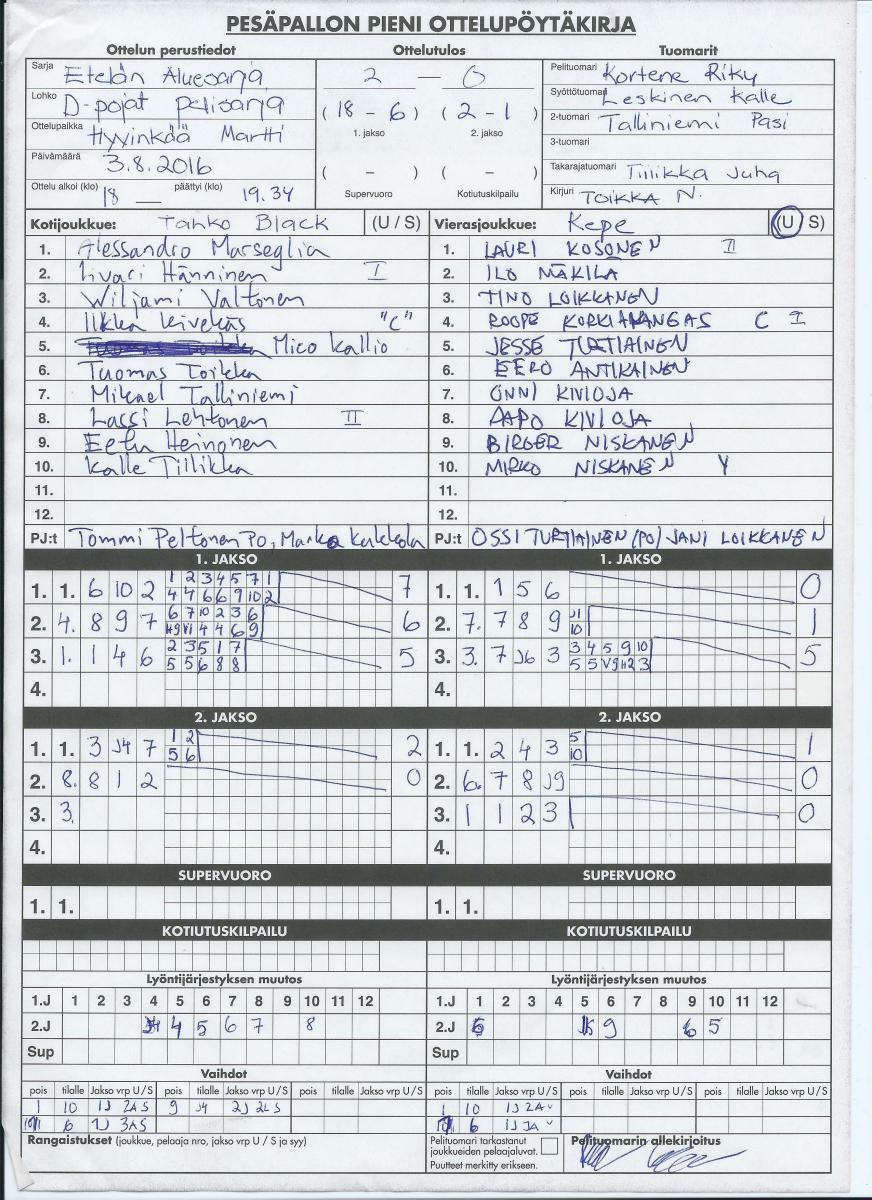 PESÄPALLON PIENI OTTELUPÖYTÄKIRJA
Ottelun perustiedot Ottelutulos Tuomarit
Sarja Etelän Aluesarja 2 – 0 Pelituomari Kortene Riky
Lohko D-pojat pelisarja (18 - 6) (2 - 1) Syöttötuomari Leskinen Kalle
Ottelupaikka Hyvinkää Martti 1. jakso 2. jakso 2-tuomari Talliniemi Pasi
3-tuomari
Päivämäärä 3.8.2016 ( – ) ( – ) Takarajatuomari Tiilikka Juha
Ottelu alkoi (klo) 18 päättyi (klo) 19.34 Supervuoro Kotiutuskilpailu Kirjuri TOIKKA N.
Kotijoukkue: Tahko Black (U / S) Vierasjoukkue: Kepe (U / S)
1. Alessandro Marseglia 1. LAURI KOSONEN II
2. Iivari Hänninen I 2. ILO MÄKILA
3. Wiljami Valtonen 3. TINO LOIKKANEN
4. Ilkka Kivekäs "C" 4. ROOPE KORKIAKANGAS C I
5. Mico Kallio 5. JESSE TURTIAINEN
6. Tuomas Toikka 6. EERO ANTIKAINEN
7. Mikael Talliniemi 7. ONNI KIVIOJA
8. Lassi Lehtonen II 8. AAPO KIVIOJA
9. Eetu Heinonen 9. BIRGER NISKANEN
10. Kalle Tiilikka 10. MIRKO NISKANEN Y
11. 11.
12. 12.
PJ:t Tommi Peltonen PO, Marko Kukkola PJ:t OSSI TURTIAINEN (PO) JANI LOIKKANEN
1. JAKSO 1. JAKSO
1. 1. 6 10 2 1 2 3 4 5 7 1 7 1. 1. 1 5 6 0
4 4 6 6 9 10 2
2. 4. 8 9 7 6 7 10 2 3 6 6 2. 7. 7 8 9 J1 1
4 4 6 9 10
3. 1. 1 4 6 2 3 5 1 7 5 3. 3. 7 J6 3 3 4 5 9 10 5
5 5 6 8 8 5 5 2 3
4. 4.
2. JAKSO 2. JAKSO
1. 1. 3 J4 7 1 2 2 1. 1. 2 4 3 5 1
5 6 10
2. 8. 8 1 2 0 2. 6. 7 8 J9 0
3. 3. 3. 1 1 2 3 0
4. 4.
SUPERVUORO SUPERVUORO
1. 1. 1. 1.
KOTIUTUSKILPAILU KOTIUTUSKILPAILU
Lyöntijärjestyksen muutos Lyöntijärjestyksen muutos
1.J 1 2 3 4 5 6 7 8 9 10 11 12 1.J 1 2 3 4 5 6 7 8 9 10 11 12
2.J 4 5 6 7 8 2.J 6 9 6 5
Sup Sup
Vaihdot Vaihdot
pois tilalle Jakso vrp U/S pois tilalle Jakso vrp U/S pois tilalle Jakso vrp U/S pois tilalle Jakso vrp U/S
1 10 1J 2A S 9 J4 2J 2L S 1 10 1J 2A U
6 1J 3A S 6
Rangaistukset (joukkue, pelaaja nro, jakso vrp U / S ja syy) Pelituomari tarkastanut Pelituomarin allekirjoitus
joukkueiden pelaajaluvat.
Puutteet merkitty erikseen.